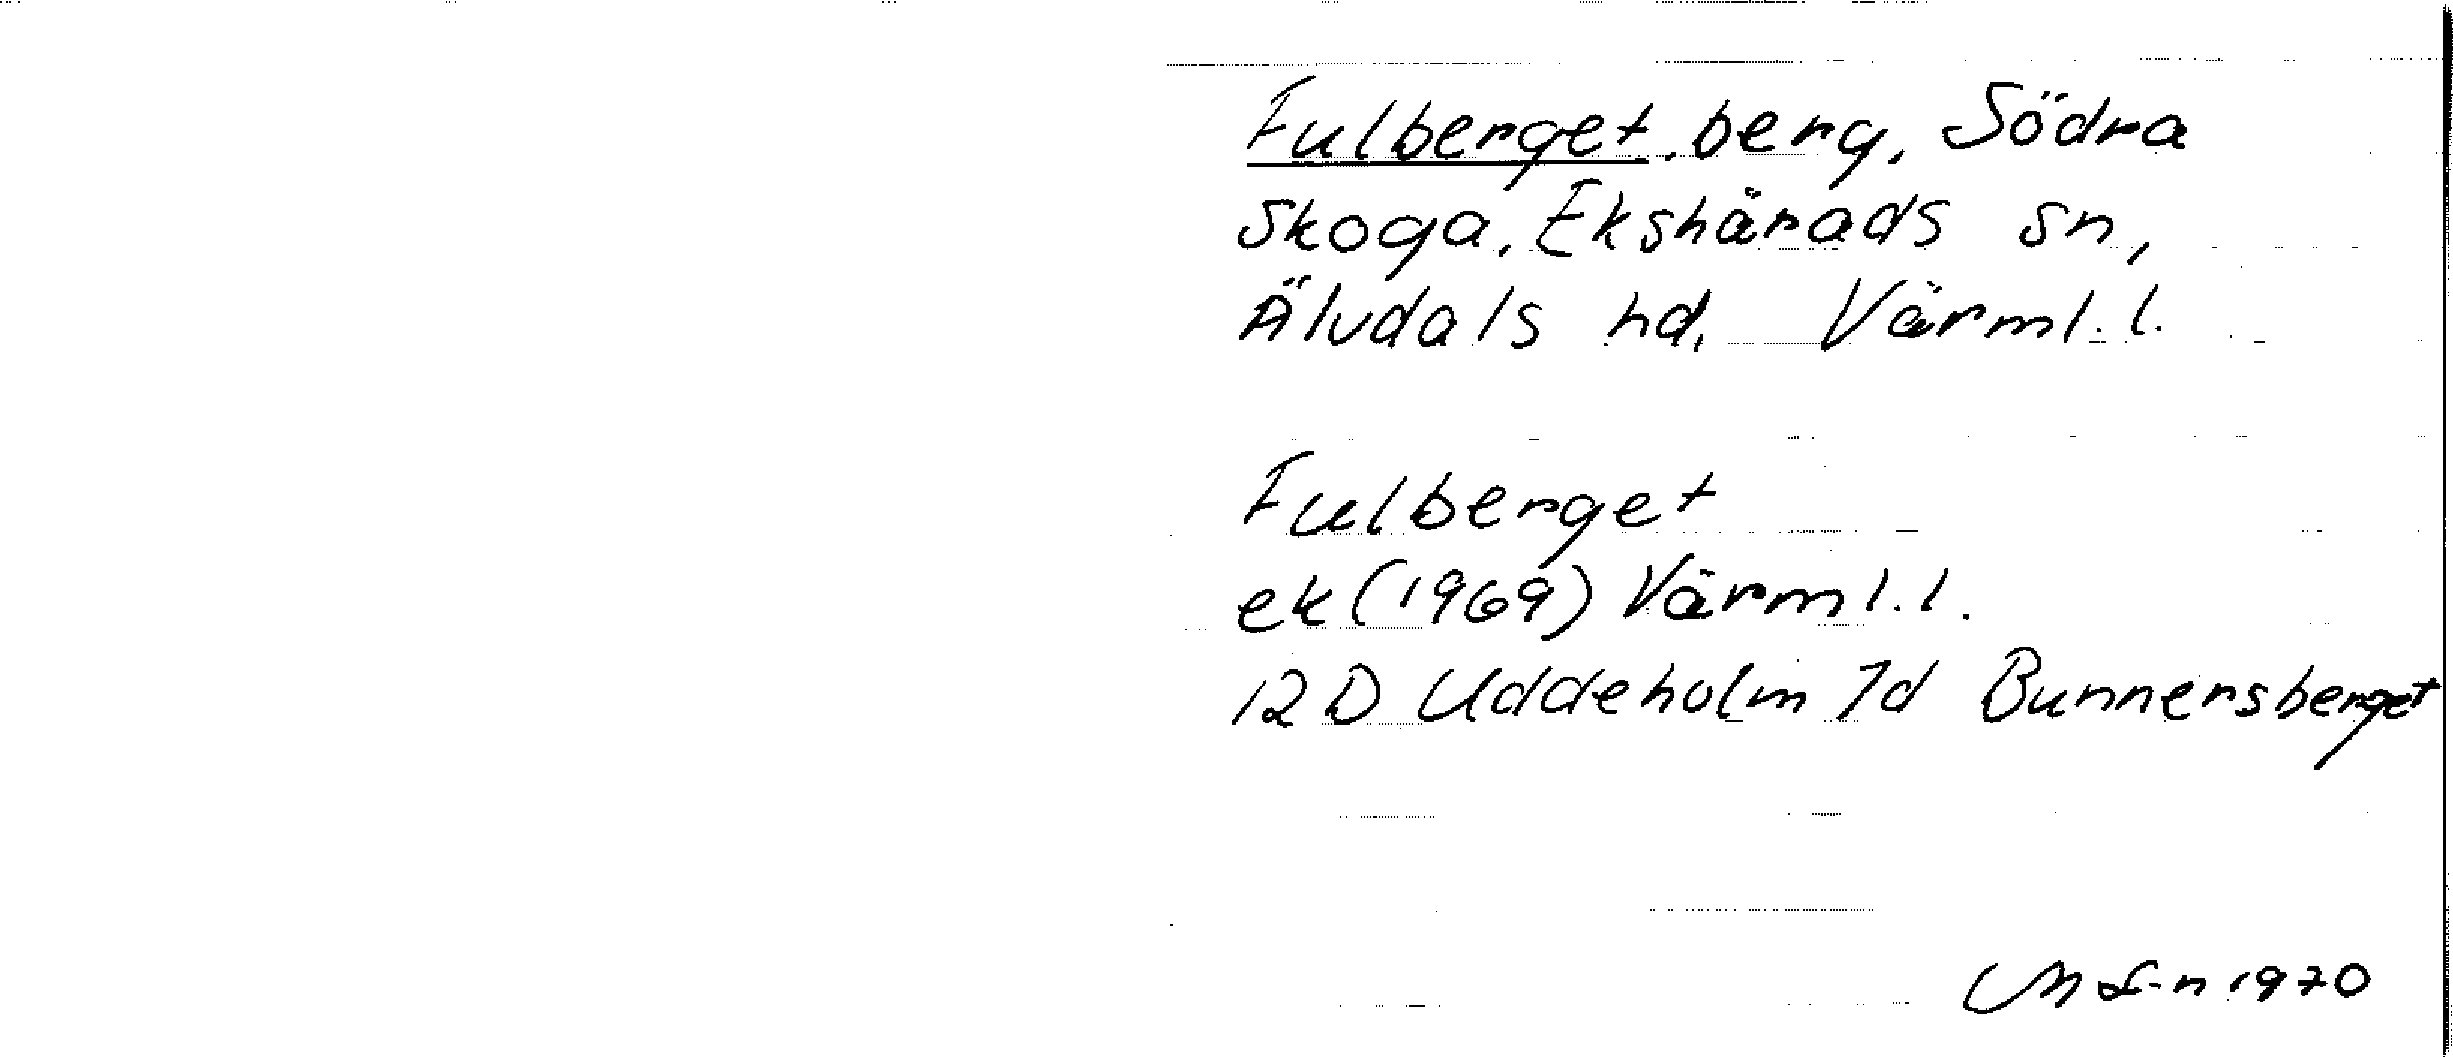 Fulberget, berg, Södra
Skoga, Ekshärads sn,
Älvdals hd, Värml. l.
Fulberget
ek (1969) Värml. l.
12D Uddeholm 7d Bunnersberget
1970